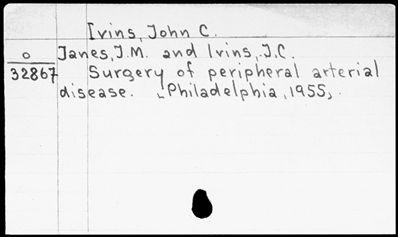 Ivins, John C.
o Janes, J.M. and Ivins, J.C.
32867 Surgery of peripheral arterial
disease. [Philadelphia, 1955].